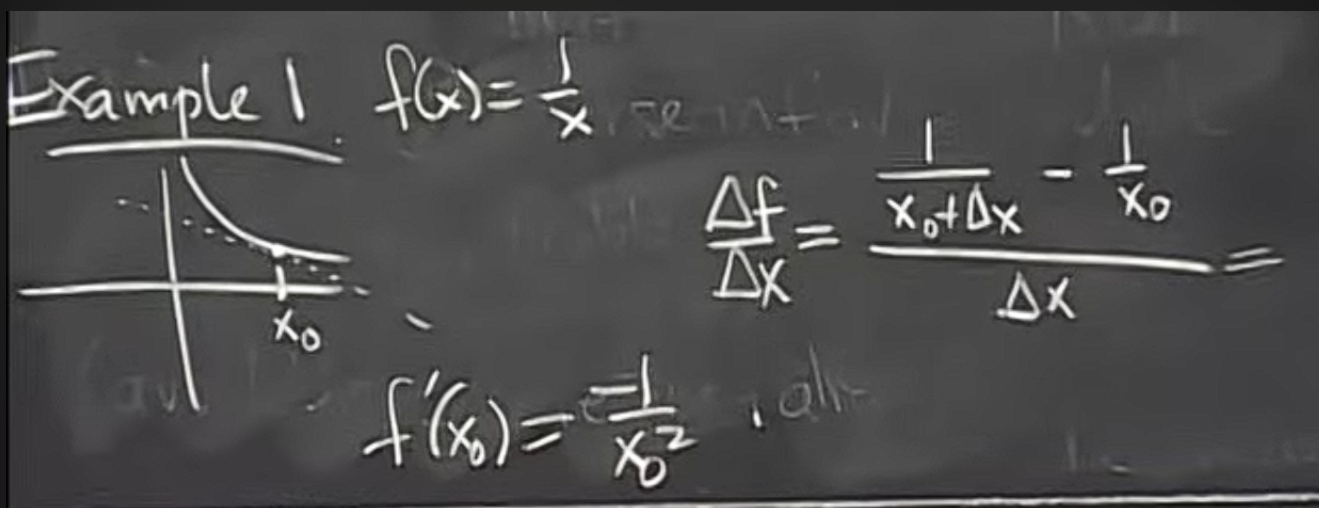 Example 1 f(x) = 1/x
Δf/Δx = (1/(x₀+Δx) - 1/x₀)/Δx =
x₀
f'(x₀) = -1/x₀²